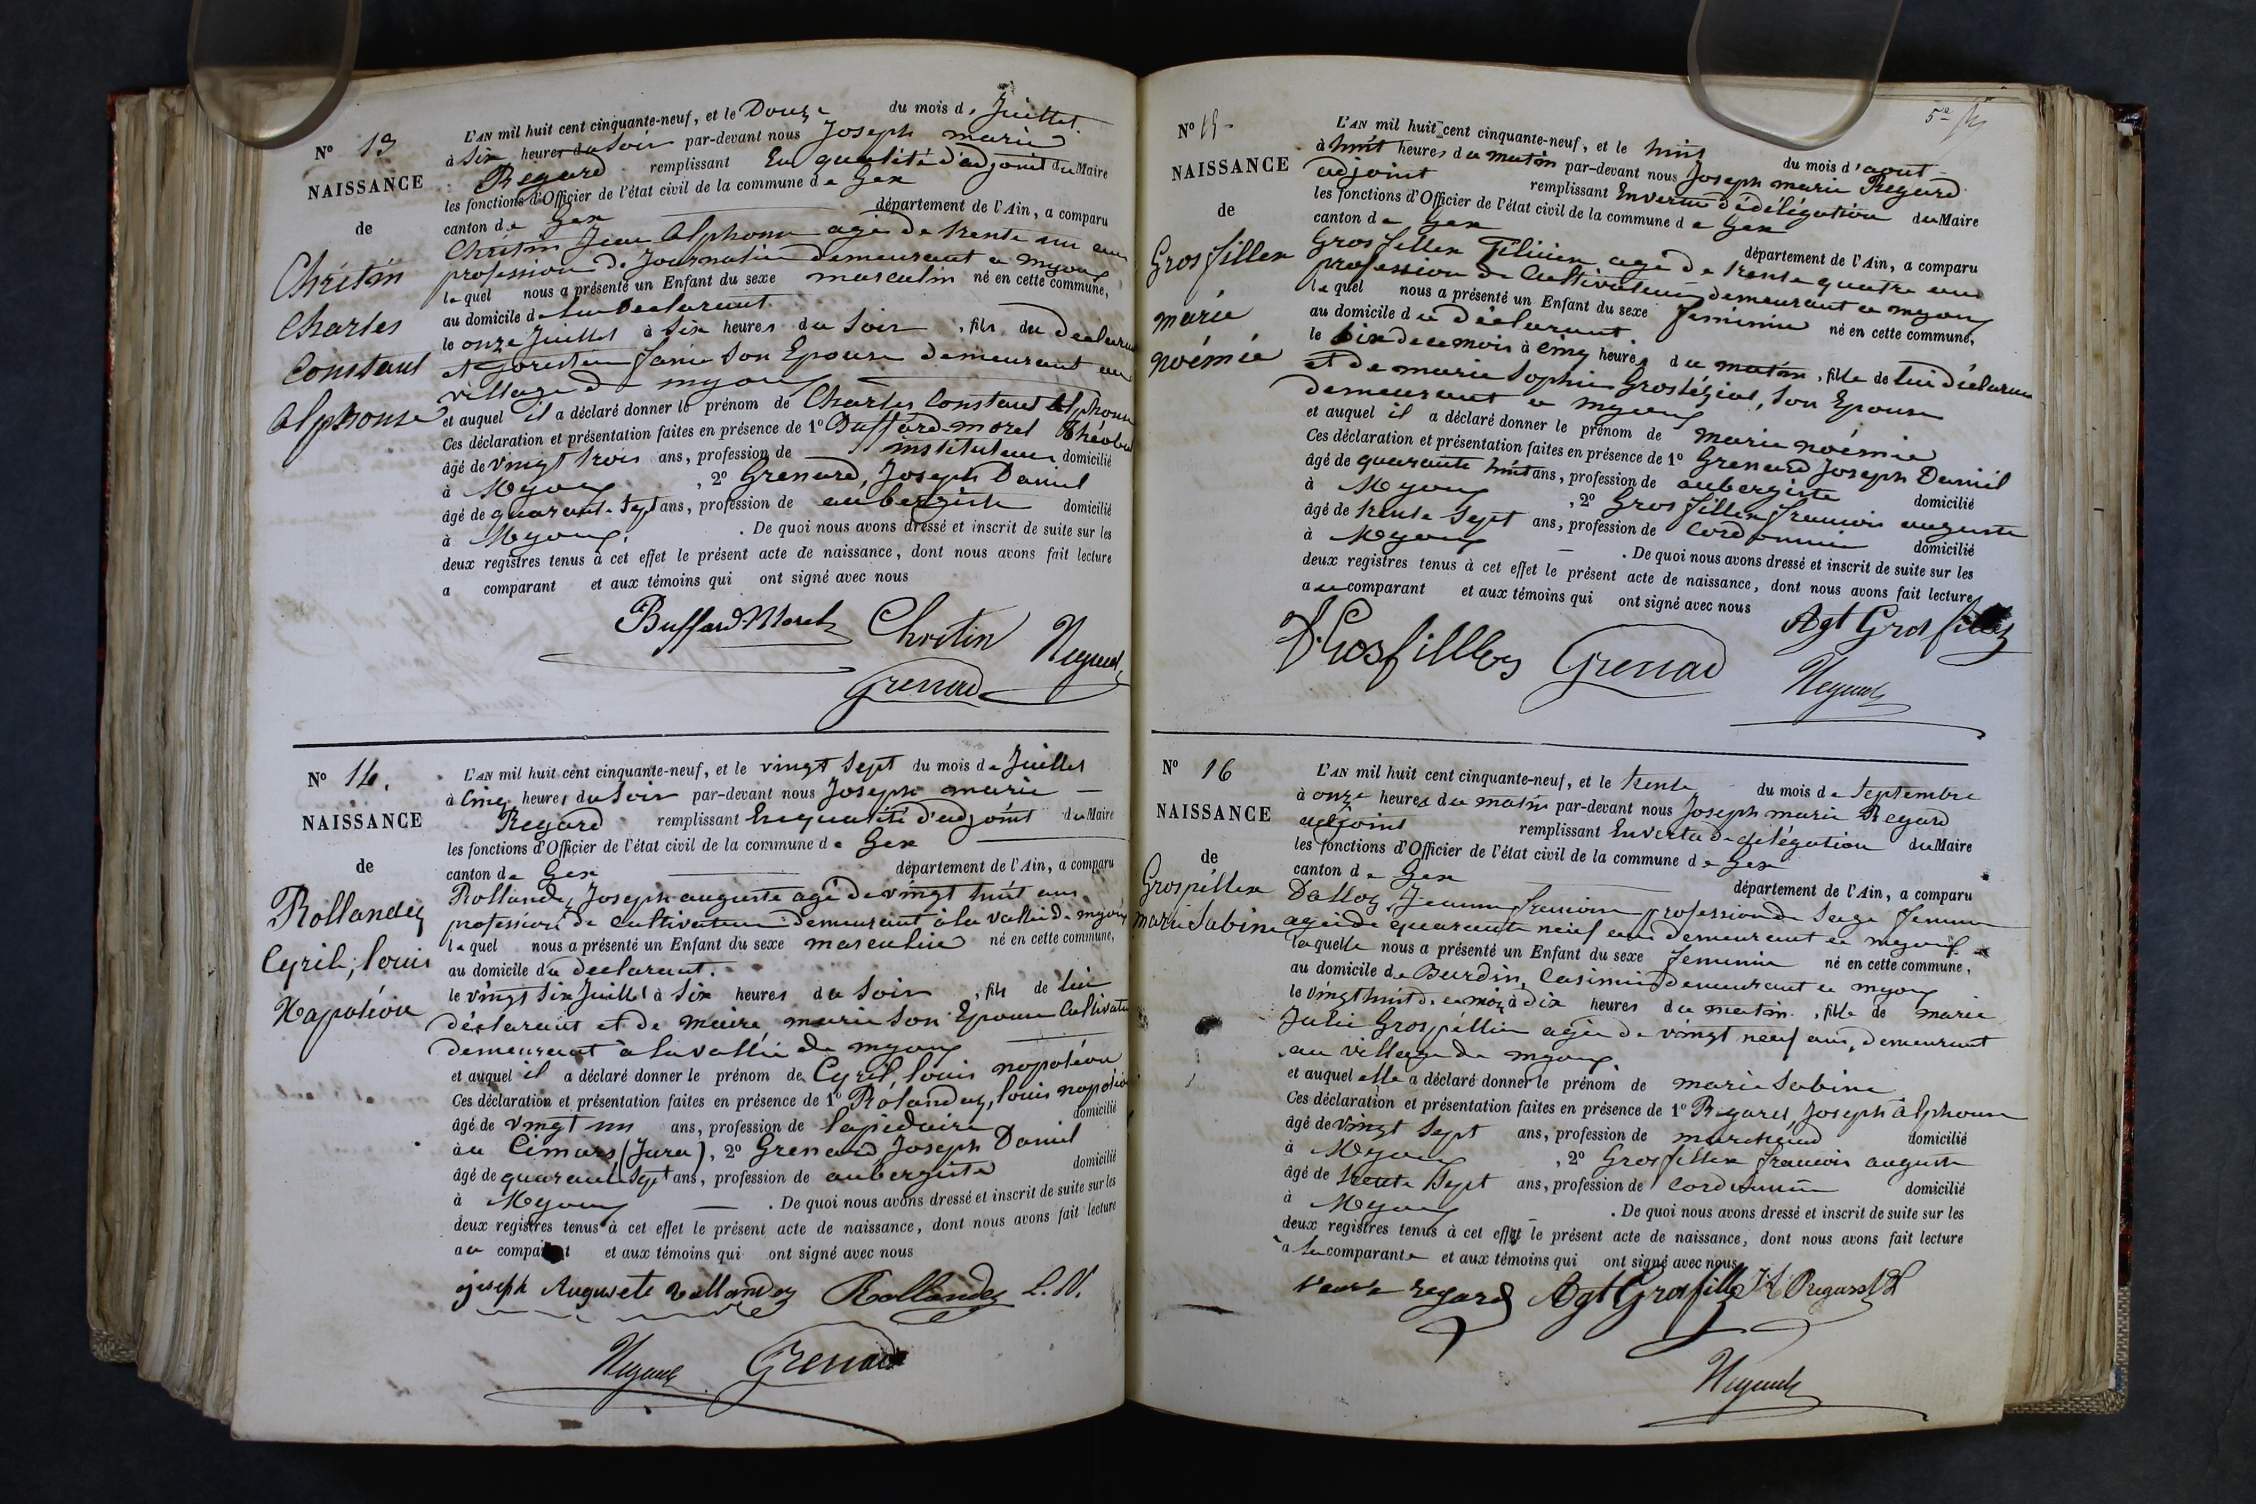 N° 13
NAISSANCE
de
Chritin
Charles
Constant
Alphonse
L'AN mil huit cent cinquante-neuf, et le Douze du mois de Juillet.
à Six heures du Soir par-devant nous Joseph marie
Regard remplissant En qualité d'adjoint du Maire
les fonctions d'Officier de l'état civil de la commune de Gex
canton de Gex département de l'Ain, a comparu
Chritin Jean Alphonse agé de trente un ans
profession de Journalier demeurant a myoux
lequel nous a présenté un Enfant du sexe masculin né en cette commune,
au domicile de lui Declarant
le onze Juillet à Six heures du Soir, fils du Declarant
et fanie Son Epouse demeurant au
village de myoux
et auquel il a déclaré donner le prénom de Charles Constant Alphonse
Ces déclaration et présentation faites en présence de 1° Buffard-morel
âgé de vingt trois ans, profession de instituteur domicilié
à Myoux, 2° Grenard, Joseph Daniel
âgé de quarante Sept ans, profession de aubergiste domicilié
à Myoux. De quoi nous avons dressé et inscrit de suite sur les
deux registres tenus à cet effet le présent acte de naissance, dont nous avons fait lecture
a comparant et aux témoins qui ont signé avec nous
Buffard-Morel Chritin Regard
Grenard
N° 14.
NAISSANCE
de
Rollandez
Cyril, louis
Napoléon
L'AN mil huit cent cinquante-neuf, et le vingt Sept du mois de Juillet
à Cinq heures du Soir par-devant nous Joseph marie
Regard remplissant En qualité d'adjoint du Maire
les fonctions d'Officier de l'état civil de la commune de Gex
canton de Gex département de l'Ain, a comparu
Rollandez, Joseph auguste agé de vingt huit ans
profession de cultivateur demeurant à la vallée de myoux
lequel nous a présenté un Enfant du sexe masculin né en cette commune,
au domicile du declarant.
le vingt Six Juillet à Six heures du Soir, fils de lui
déclarant et de marie Son Epouse Cultivatr
demeurant à la vallée de myoux
et auquel il a déclaré donner le prénom de Cyril, louis napoléon
Ces déclaration et présentation faites en présence de 1° Rolandez, louis napoléon
âgé de vingt un ans, profession de lapidaire domicilié
à (Jura), 2° Grenard, Joseph Daniel
âgé de quarante Sept ans, profession de aubergiste domicilié
à Myoux. De quoi nous avons dressé et inscrit de suite sur les
deux registres tenus à cet effet le présent acte de naissance, dont nous avons fait lecture
au comparant et aux témoins qui ont signé avec nous
joseph Auguste Rollandez Rollandez L. N.
Regard Grenard
5e
N° 15
NAISSANCE
de
Grosfillex
marie
noémie
L'AN mil huit cent cinquante-neuf, et le huit du mois d'aout
à huit heures du matin par-devant nous Joseph marie Regard
adjoint remplissant En vertu de délégation du Maire
les fonctions d'Officier de l'état civil de la commune de Gex
canton de Gex département de l'Ain, a comparu
Grosfillex agé de trente quatre ans
profession de Cultivateur demeurant a myoux
lequel nous a présenté un Enfant du sexe féminin né en cette commune,
au domicile du déclarant
le Six de ce mois à Cinq heures du matin, fille de lui déclarant
et de marie Sophie, Son Epouse
demeurant a myoux
et auquel il a déclaré donner le prénom de marie noémie
Ces déclaration et présentation faites en présence de 1° Grenard Joseph Daniel
âgé de quarante huit ans, profession de aubergiste domicilié
à Myoux, 2° Grosfillex francois auguste
âgé de trente Sept ans, profession de cordonnier domicilié
à Myoux. De quoi nous avons dressé et inscrit de suite sur les
deux registres tenus à cet effet le présent acte de naissance, dont nous avons fait lecture
au comparant et aux témoins qui ont signé avec nous
Agt Grosfillex
Grenad
Regard
N° 16
NAISSANCE
de
Grospéllex
marie Sabine
L'AN mil huit cent cinquante-neuf, et le trente du mois de Septembre
à onze heures du matin par-devant nous Joseph marie Regard
adjoint remplissant En vertu de délégation du Maire
les fonctions d'Officier de l'état civil de la commune de Gex
canton de Gex département de l'Ain, a comparu
Dalloz, Jeanne francoise profession de Sage femme
agée de quarante neuf ans demeurant a myoux
laquelle nous a présenté un Enfant du sexe feminin né en cette commune,
au domicile de Burdin, Casimir demeurant a myoux
le vingt huit de ce mois à dix heures du matin, fille de marie
Julie Grospéllex agée de vingt neuf ans, demeurant
au village de myoux
et auquel elle a déclaré donner le prénom de marie Sabine
Ces déclaration et présentation faites en présence de 1° Regard, Joseph alphonse
âgé de vingt Sept ans, profession de marchand domicilié
à Myoux, 2° Grosfillex francois auguste
âgé de trente Sept ans, profession de cordonnier domicilié
à Myoux. De quoi nous avons dressé et inscrit de suite sur les
deux registres tenus à cet effet le présent acte de naissance, dont nous avons fait lecture
a la comparante et aux témoins qui ont signé avec nous
regard Agt Grosfillex Regard
Regard